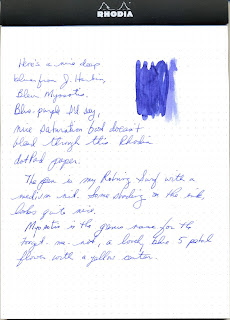 RHODIA
Here's a nice deep
blue from J. Herbin,
Bleu Myosotis.
Blue-purple I'd say,
nice saturation but doesn't
bleed through this Rhodia
dotPad paper.
The pen is my Rotring Surf with a
medium nib. Some shading on the ink,
looks quite nice.
Myosotis is the genus name for the
forget-me-not, a lovely blue 5 petal
flower with a yellow center.